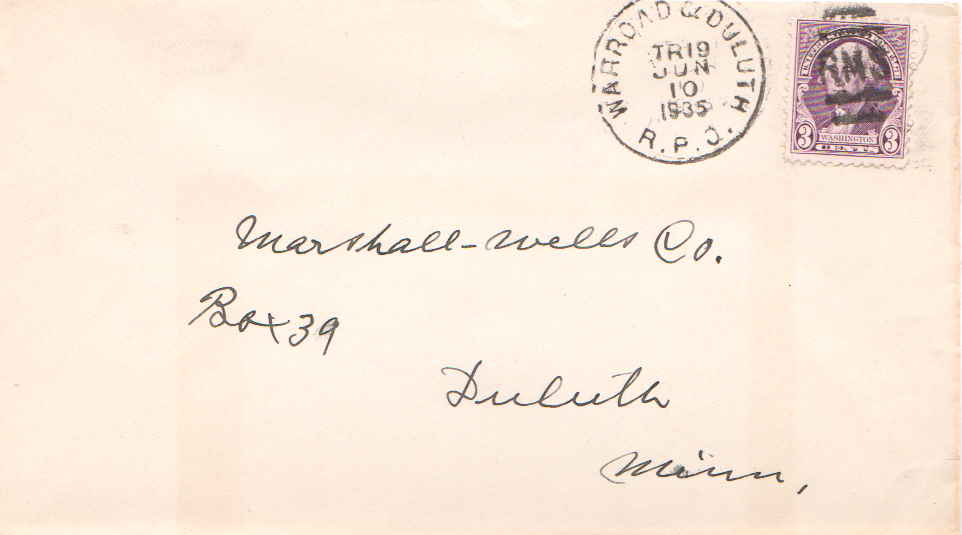 WARROAD & DULUTH
TR19
JUN
10
1935
R.P.O.
UNITED STATES POSTAGE
RMS
3 WASHINGTON 3
CENTS
Marshall-Wells Co.
Box 39
Duluth
Minn,